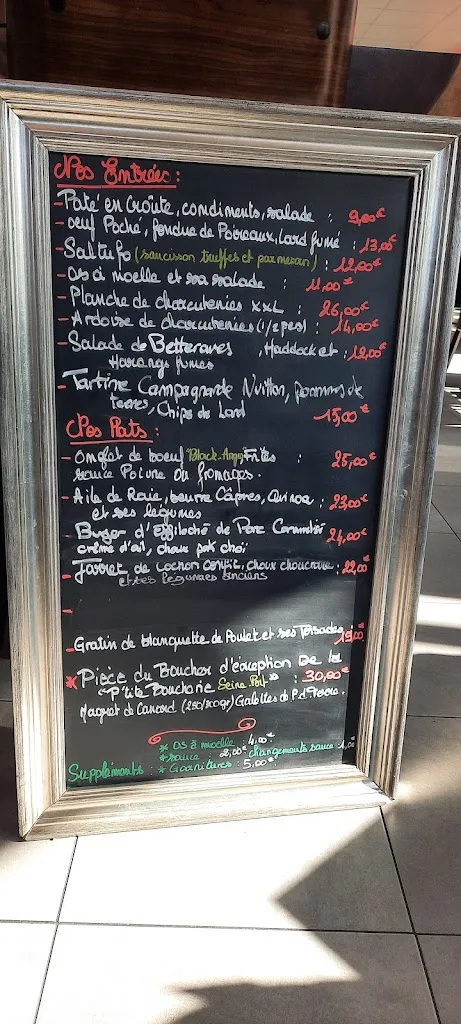 Nos Entrées :
- Paté en Croûte, condiments, salade : 9,00€
- oeuf Poché, fondue de Poireaux, Lard fumé : 13,00€
- Saltufo (saucisson truffes et parmesan) : 12,00€
- Os à moelle et sa salade : 11,00€
- Planche de charcuteries XXL : 26,00€
- Ardoise de charcuteries (1/2 pers) : 14,00€
- Salade de Betteraves , Haddock et : 12,00€
Harengs fumés
- Tartine Campagnarde Vuitton, pommes de
terres, Chips de Lard 15,00€
Nos Plats :
- Onglet de boeuf Black-Angus Frites : 25,00€
sauce Poivre ou fromages.
- Aile de Raie, beurre Câpres, Quinoa : 23,00€
et ses légumes
- Burger d'effiloché de Porc Caramélisé 24,00€
crème d'ail, choux pak choi
- Jarret de cochon confit, choux choucroute : 22,00€
et ses légumes anciens
-
- Gratin de blanquette de Poulet et ses Torsades : 19,00
* Pièce du Boucher d'éxception De la
"P'tite Boucherie Seine Port" : 30,00€
Magret de Canard (280/300gr) Galettes de P.d.Terre.
* Os à moelle : 4,00€
* sauce 2,00€ changements sauce : 1,00€
Suppléments : * Garnitures : 5,00€